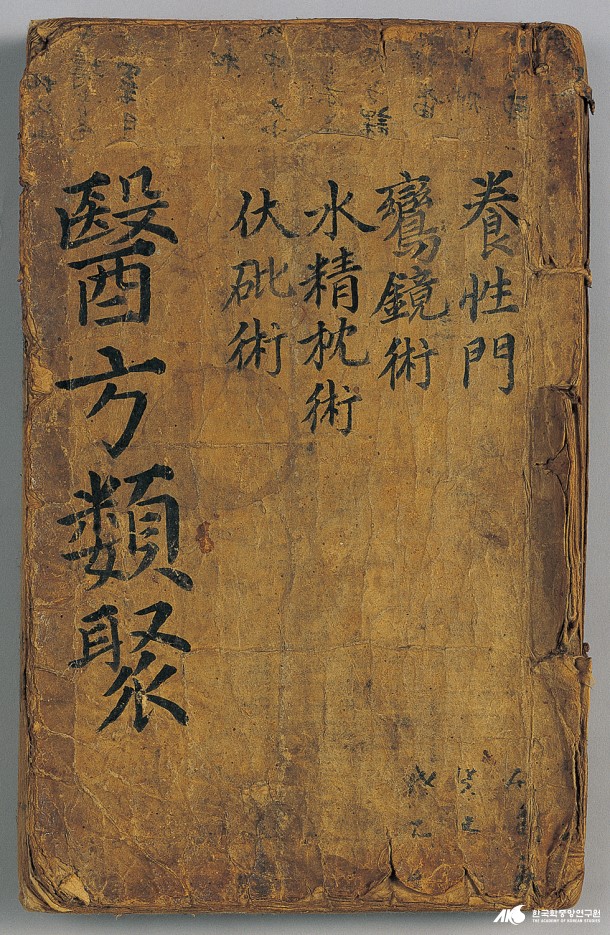 養性門
鸞鏡術
水精枕術
伏砒術
醫方類聚
한국학중앙연구원
THE ACADEMY OF KOREAN STUDIES